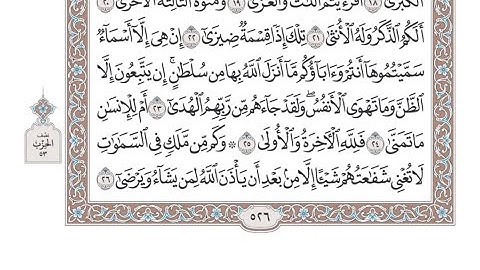 ٱلْكُبْرَىٰٓ ١٨ أَفَرَءَيْتُمُ ٱللَّٰتَ وَٱلْعُزَّىٰ ١٩ وَمَنَوٰةَ ٱلثَّالِثَةَ ٱلْأُخْرَىٰٓ ٢٠
أَلَكُمُ ٱلذَّكَرُ وَلَهُ ٱلْأُنثَىٰ ٢١ تِلْكَ إِذًا قِسْمَةٌ ضِيزَىٰٓ ٢٢ إِنْ هِىَ إِلَّآ أَسْمَآءٌ
سَمَّيْتُمُوهَآ أَنتُمْ وَءَابَآؤُكُم مَّآ أَنزَلَ ٱللَّهُ بِهَا مِن سُلْطَٰنٍ ۚ إِن يَتَّبِعُونَ إِلَّا
ٱلظَّنَّ وَمَا تَهْوَى ٱلْأَنفُسُ ۖ وَلَقَدْ جَآءَهُم مِّن رَّبِّهِمُ ٱلْهُدَىٰٓ ٢٣ أَمْ لِلْإِنسَٰنِ
مَا تَمَنَّىٰ ٢٤ فَلِلَّهِ ٱلْءَاخِرَةُ وَٱلْأُولَىٰ ٢٥ ۞ وَكَم مِّن مَّلَكٍ فِى ٱلسَّمَٰوَٰتِ
لَا تُغْنِى شَفَٰعَتُهُمْ شَيْـًٔا إِلَّا مِنۢ بَعْدِ أَن يَأْذَنَ ٱللَّهُ لِمَن يَشَآءُ وَيَرْضَىٰٓ ٢٦
نصف
الحزب
٥٣
٥٢٦